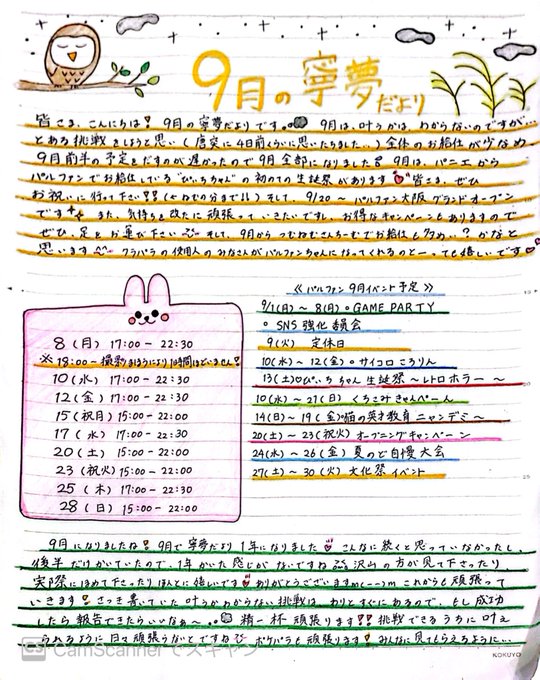 9月の寧夢だより
皆さま、こんにちは! 9月の寧夢だよりです。 9月は、叶うかは、わからないのですが…
とある挑戦をしようと思い(唐突に4日前くらいに思いたちました…)全体のお給仕が少なめ。
9月前半の予定をだすのが遅かったので9月全部になりました! 9月は、パニエから
パルファンでお給仕している"ぴぃちちゃん"の初めての生誕祭があります 皆さま、ぜひ
お祝いに行って下さい!!(ねむの分まで!!) そして、9/20~ パルファン大阪 グランドオープン
です また、気持ちを改たに頑張っていきたいですし、お得なキャンペーンもありますので
ぜひ、足をお運び下さい そして、9月からつむむむさんちーむでお給仕も多め…? かなと
思います フラパラの使用人のみなさんがパルファンちゃんになってくれるのとーっても嬉しいです
8 (月) 17:00 - 22:30
※18:00~ 撮影
10 (水) 17:00 - 22:30
12 (金) 17:00 - 22:30
15 (祝月) 15:00 - 22:00
17 (水) 17:00 - 22:30
20 (土) 15:00 - 22:00
23 (祝火) 15:00 - 22:00
25 (木) 17:00 - 22:30
28 (日) 15:00 - 22:00
《 パルファン 9月イベント予定 》
9/1(月)~8(月)。GAME PARTY
。SNS 強化委員会
9(火) 定休日
10(水)~12(金)。サイコロころりん
13(土)ぴぃちちゃん 生誕祭 ~レトロホラー~
10(水)~21(日) くちこみきゃんぺーん
14(日)~19(金)猫の英才教育 ニャンデミ~
20(土)~23(祝火) オープニングキャンペーン
24(水)~26(金) 夏のど自慢大会
27(土)~30(火) 文化祭イベント
9月になりましたね! 9月で寧夢だより1年になりました こんなに続くと思っていなかったし、
後半だけかいていたので、1年かいた感じがないですね 沢山の方が見て下さったり
実際にほめて下さったりほんとに嬉しいです ありがとうございますm(--)m これからも頑張って
いきます! さっき書いていた叶うかわからない挑戦は、わりとすぐにあるので、もし成功
したら報告できたらいいなぁ~。 精一杯頑張ります!! 挑戦できるうちに叶え
られるように日々頑張ろうなとですね ポケパラも頑張ります! みんなに見てもらえるように…
CS CamScanner でスキャン
KOKUYO